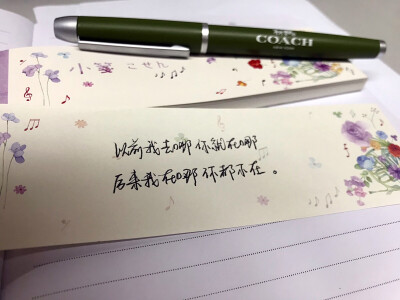 COACH
小箋 こせん
以前我去哪你就在哪
后来我在哪你都不在。